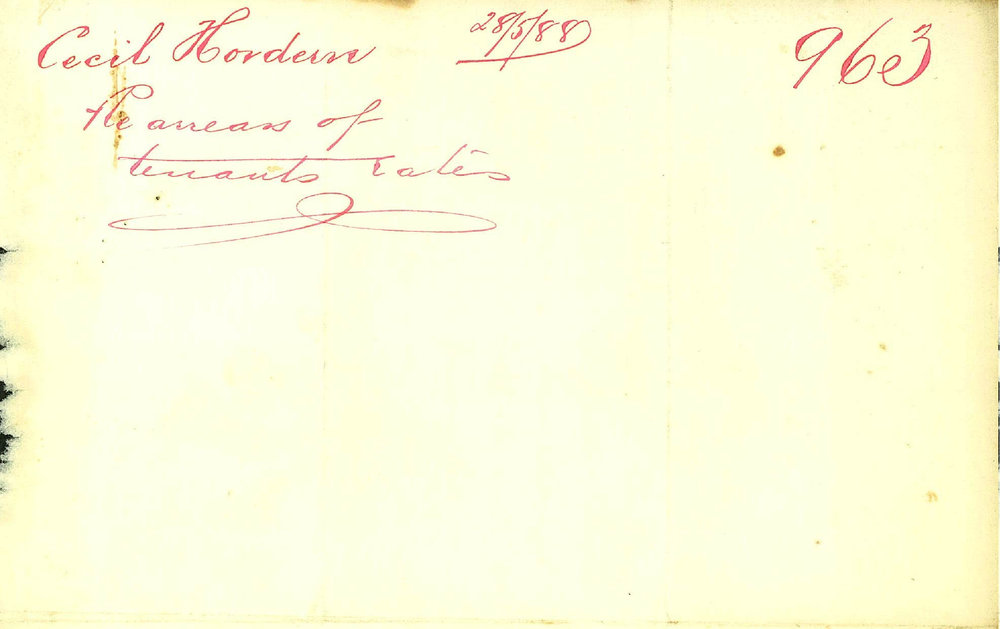 Cecil Hordern 28/5/88 963
Re arrears of
tenants rates